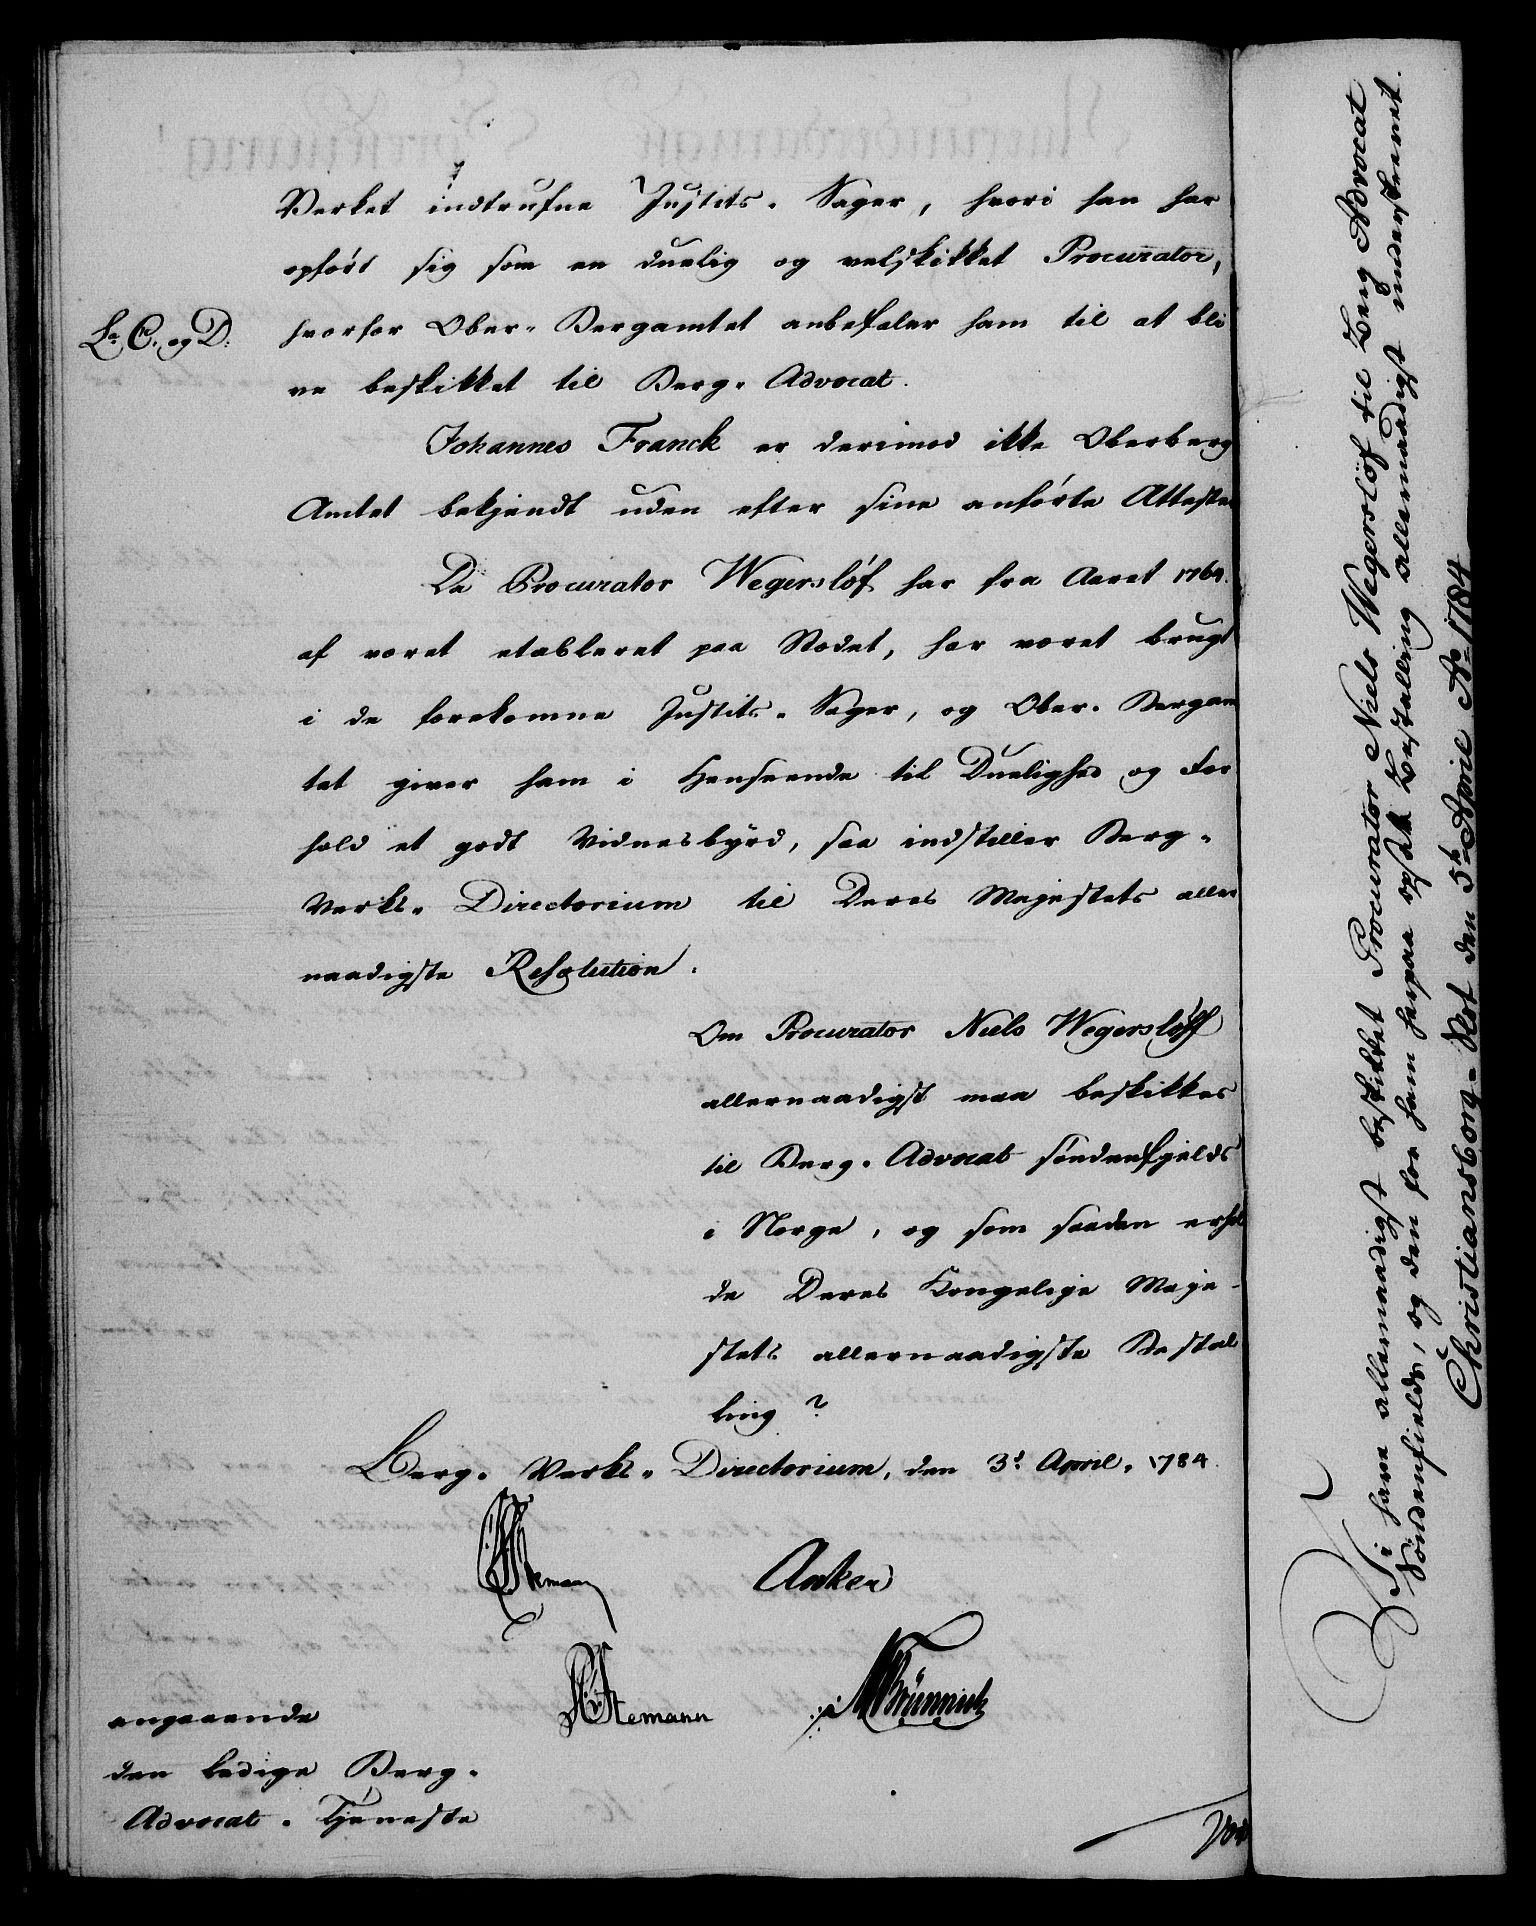 Verket indtrufne Justits-Sager, hvori han har
opført sig som en duelig og velskikket Procurator,
Lr. C. og D:
hvorfor Ober-Bergamtet anbefaler ham til at bli
ve beskikket til Berg-Advocat.
Johannes Franck er derimod ikke Oberberg
Amtet bekjendt uden efter sine anførte Attester
Da Procurator Wegersløf har fra Aaret 1764.
af været etableret paa Stædet, har været brugt
i de forekomne Justits-Sager, og Ober-Bergam
tet giver ham i Henseende til Duelighed og For
hold et godt Vidnesbyrd, saa indstiller Berg-
Verks-Directorium til Deres Majestets aller
naadigste Resolution.
Om Procurator Niels Wegersløff
allernaadigst maa beskikkes
til Berg-Advocat søndenfjelds
i Norge, og som saadan erhol
de Deres Kongelige Maje-
stets allernaadigste Bestal
ling?
Berg-Verks-Directorium, den 3d April, 1784.
Stemann
Anker
Stemann
Brünnich
angaaende
den ledige Berg-
Advocat-Tjeneste
Vi have allernaadigst beskikket Procurator Niels Wegersløf til Berg Advocat
Søndenfields, og den for ham herpaa opsatte Bestalling allernaadigst underskrevet.
Christiansborg-Slot den 5te April Ao 1784